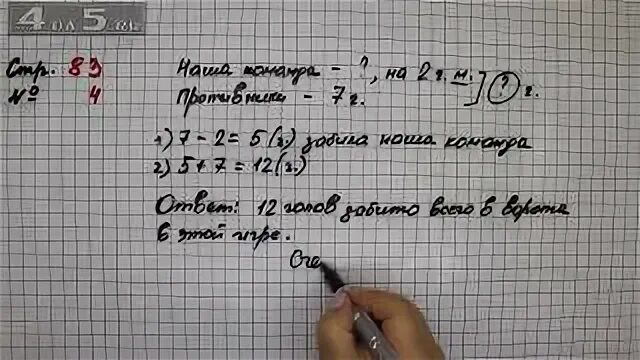 4 на 5 .ru
Стр. 83
№ 4
Наша команда - ?, на 2 г. м.
Противники - 7 г.
? г.
1) 7 - 2 = 5 (г.) забила наша команда
2) 5 + 7 = 12 (г.)
Ответ: 12 голов забито всего в ворота
в этой игре.